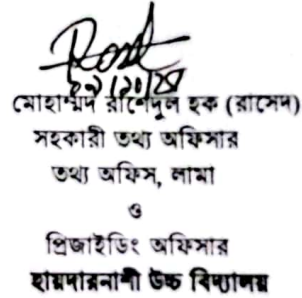 মোহাম্মদ রাশেদুল হক (রাসেদ)
সহকারী তথ্য অফিসার
তথ্য অফিস, লামা
ও
প্রিজাইডিং অফিসার
হায়দারনাশী উচ্চ বিদ্যালয়